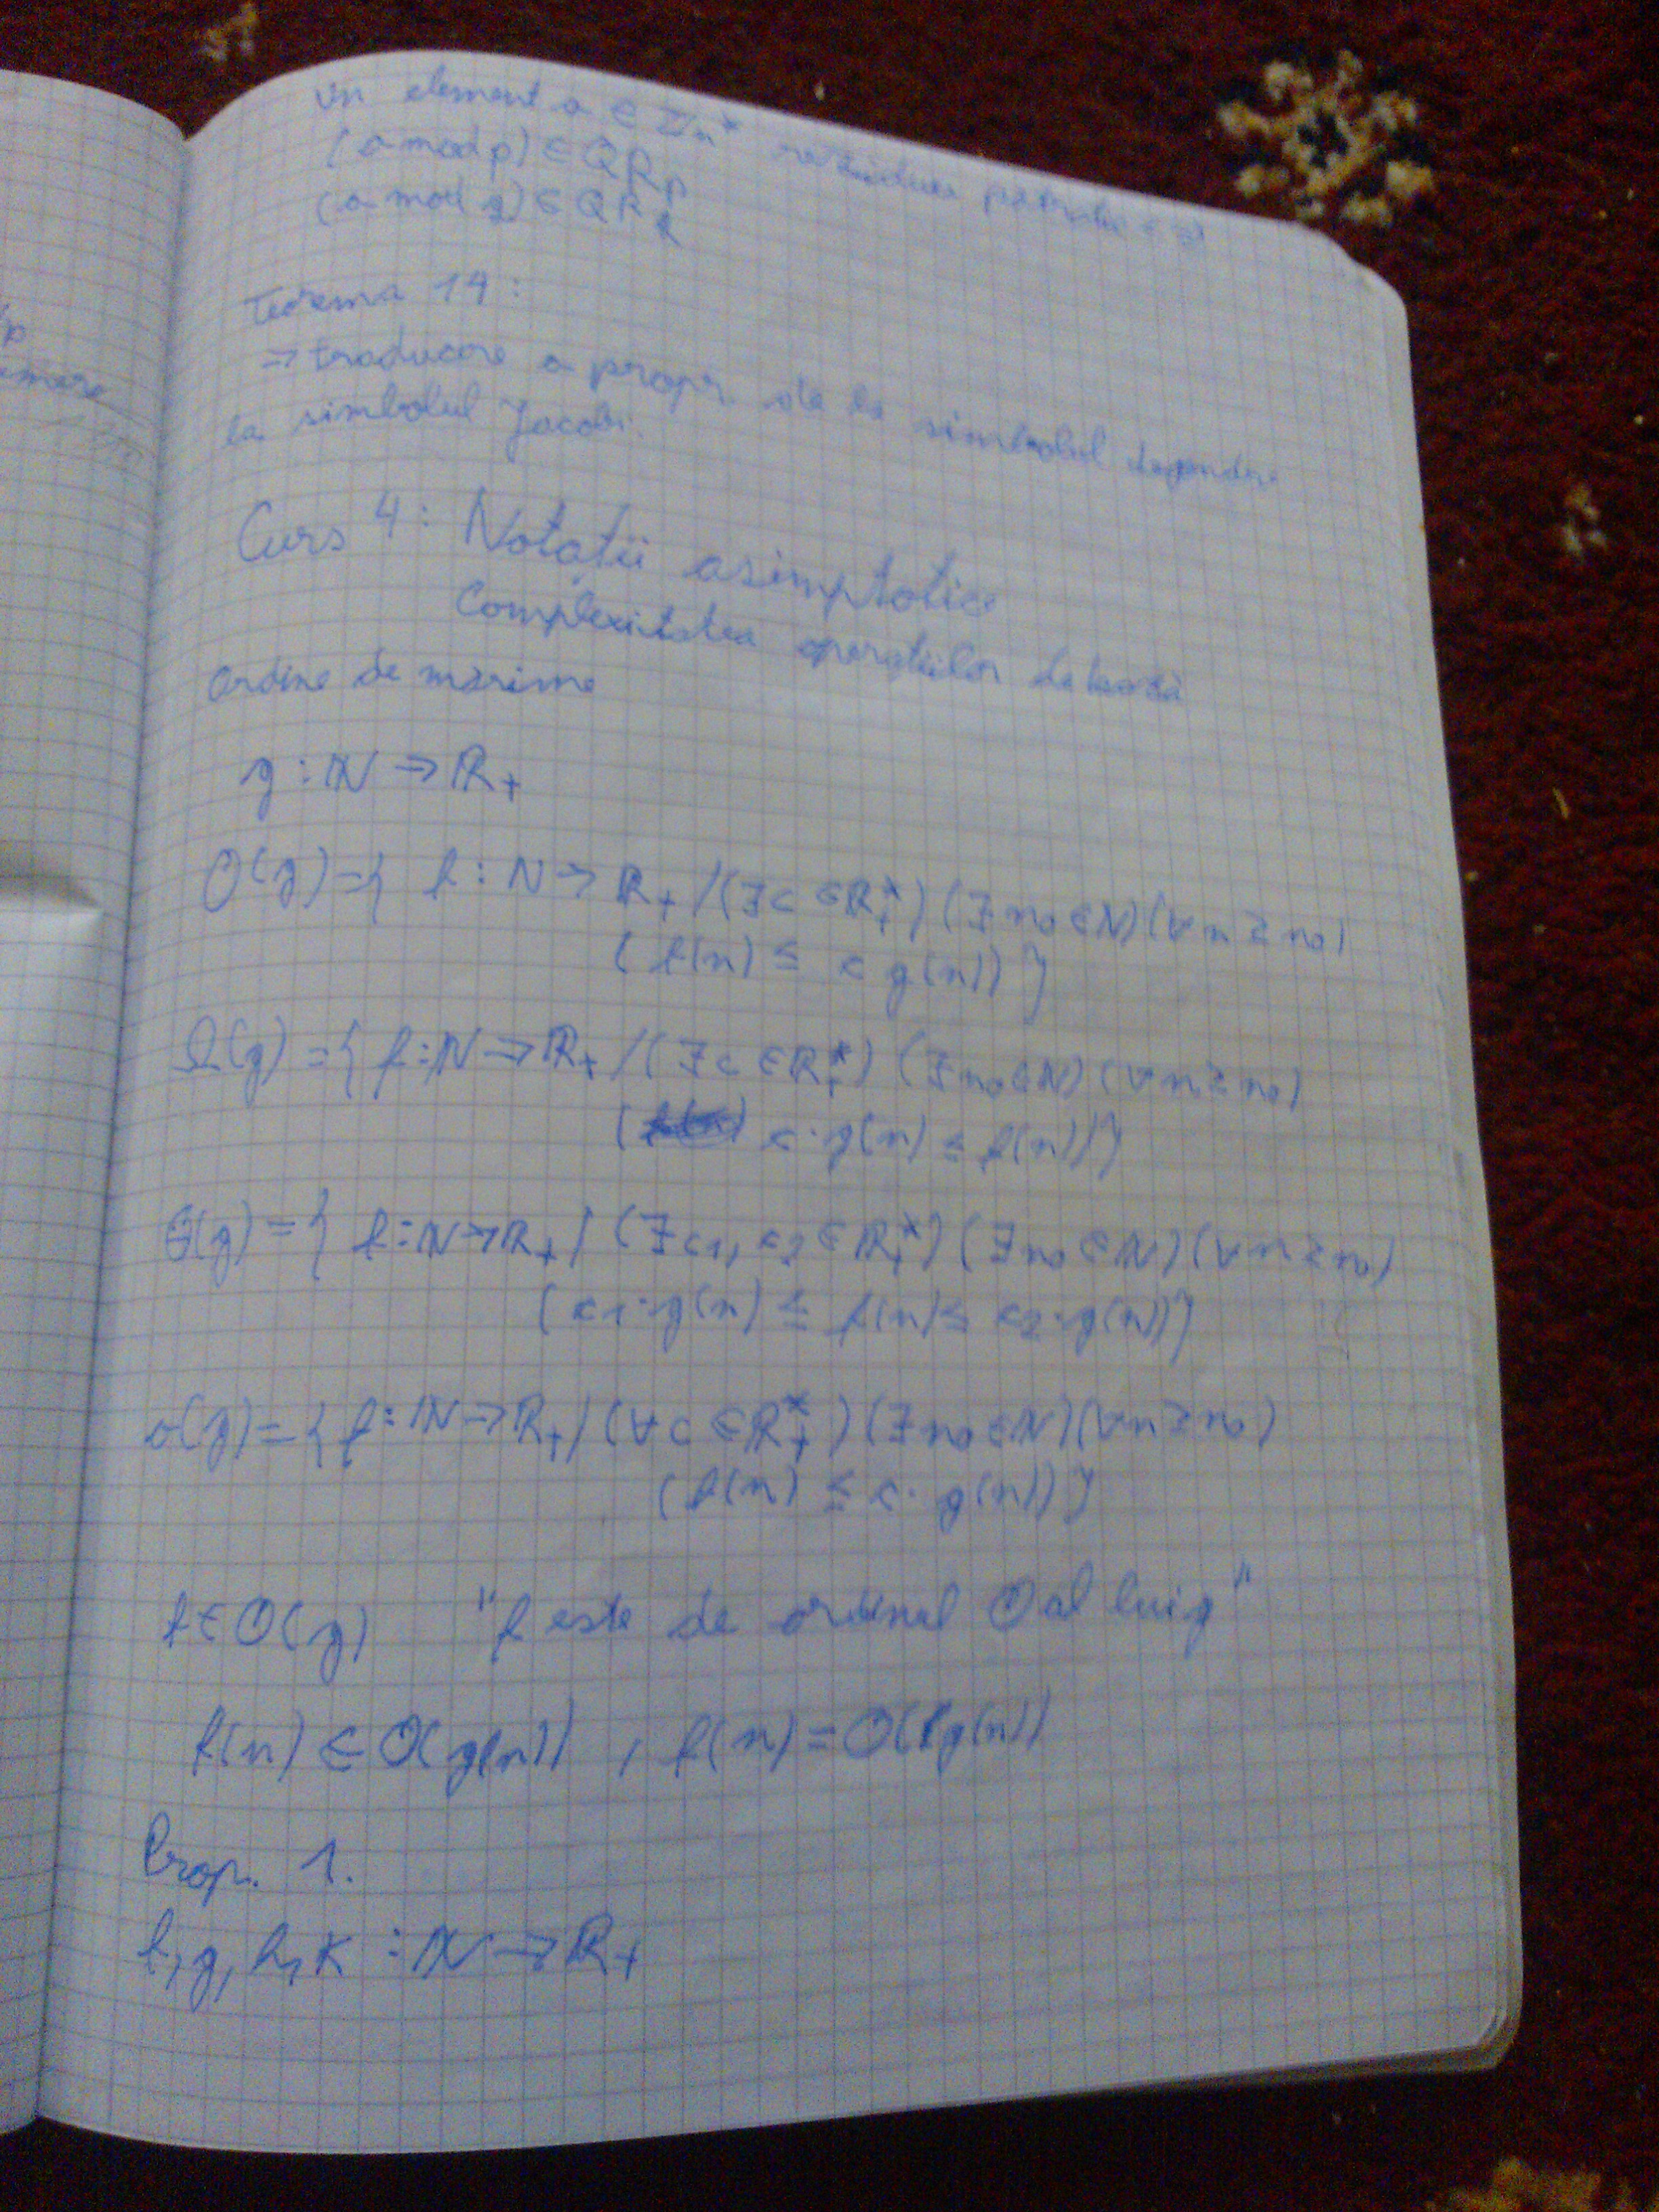 Un element a ∈ Zn* reziduu patratic <=>
(a mod p) ∈ QRp
(a mod q) ∈ QRq
Teorema 14 :
=> traducere a propr. de la simbolul Legendre
la simbolul Jacobi.
Curs 4 : Notații asimptotice
Complexitatea operațiilor de bază
Ordine de mărime
g : N → R+
O(g) = { f : N → R+ / (∃ c ∈ R+*) (∃ n0 ∈ N) (∀ n ≥ n0)
( f(n) ≤ c g(n)) }
Ω(g) = { f : N → R+ / (∃ c ∈ R+*) (∃ n0 ∈ N) (∀ n ≥ n0)
( c · g(n) ≤ f(n)) }
Θ(g) = { f : N → R+ / (∃ c1, c2 ∈ R+*) (∃ n0 ∈ N) (∀ n ≥ n0)
(c1 · g(n) ≤ f(n) ≤ c2 · g(n)) }
o(g) = { f : N → R+ / (∀ c ∈ R+*) (∃ n0 ∈ N) (∀ n ≥ n0)
( f(n) ≤ c · g(n)) }
f ∈ O(g) "f este de ordinul O al lui g"
f(n) ∈ O(g(n)) , f(n) = O(g(n))
Prop. 1.
f, g, h, k : N → R+